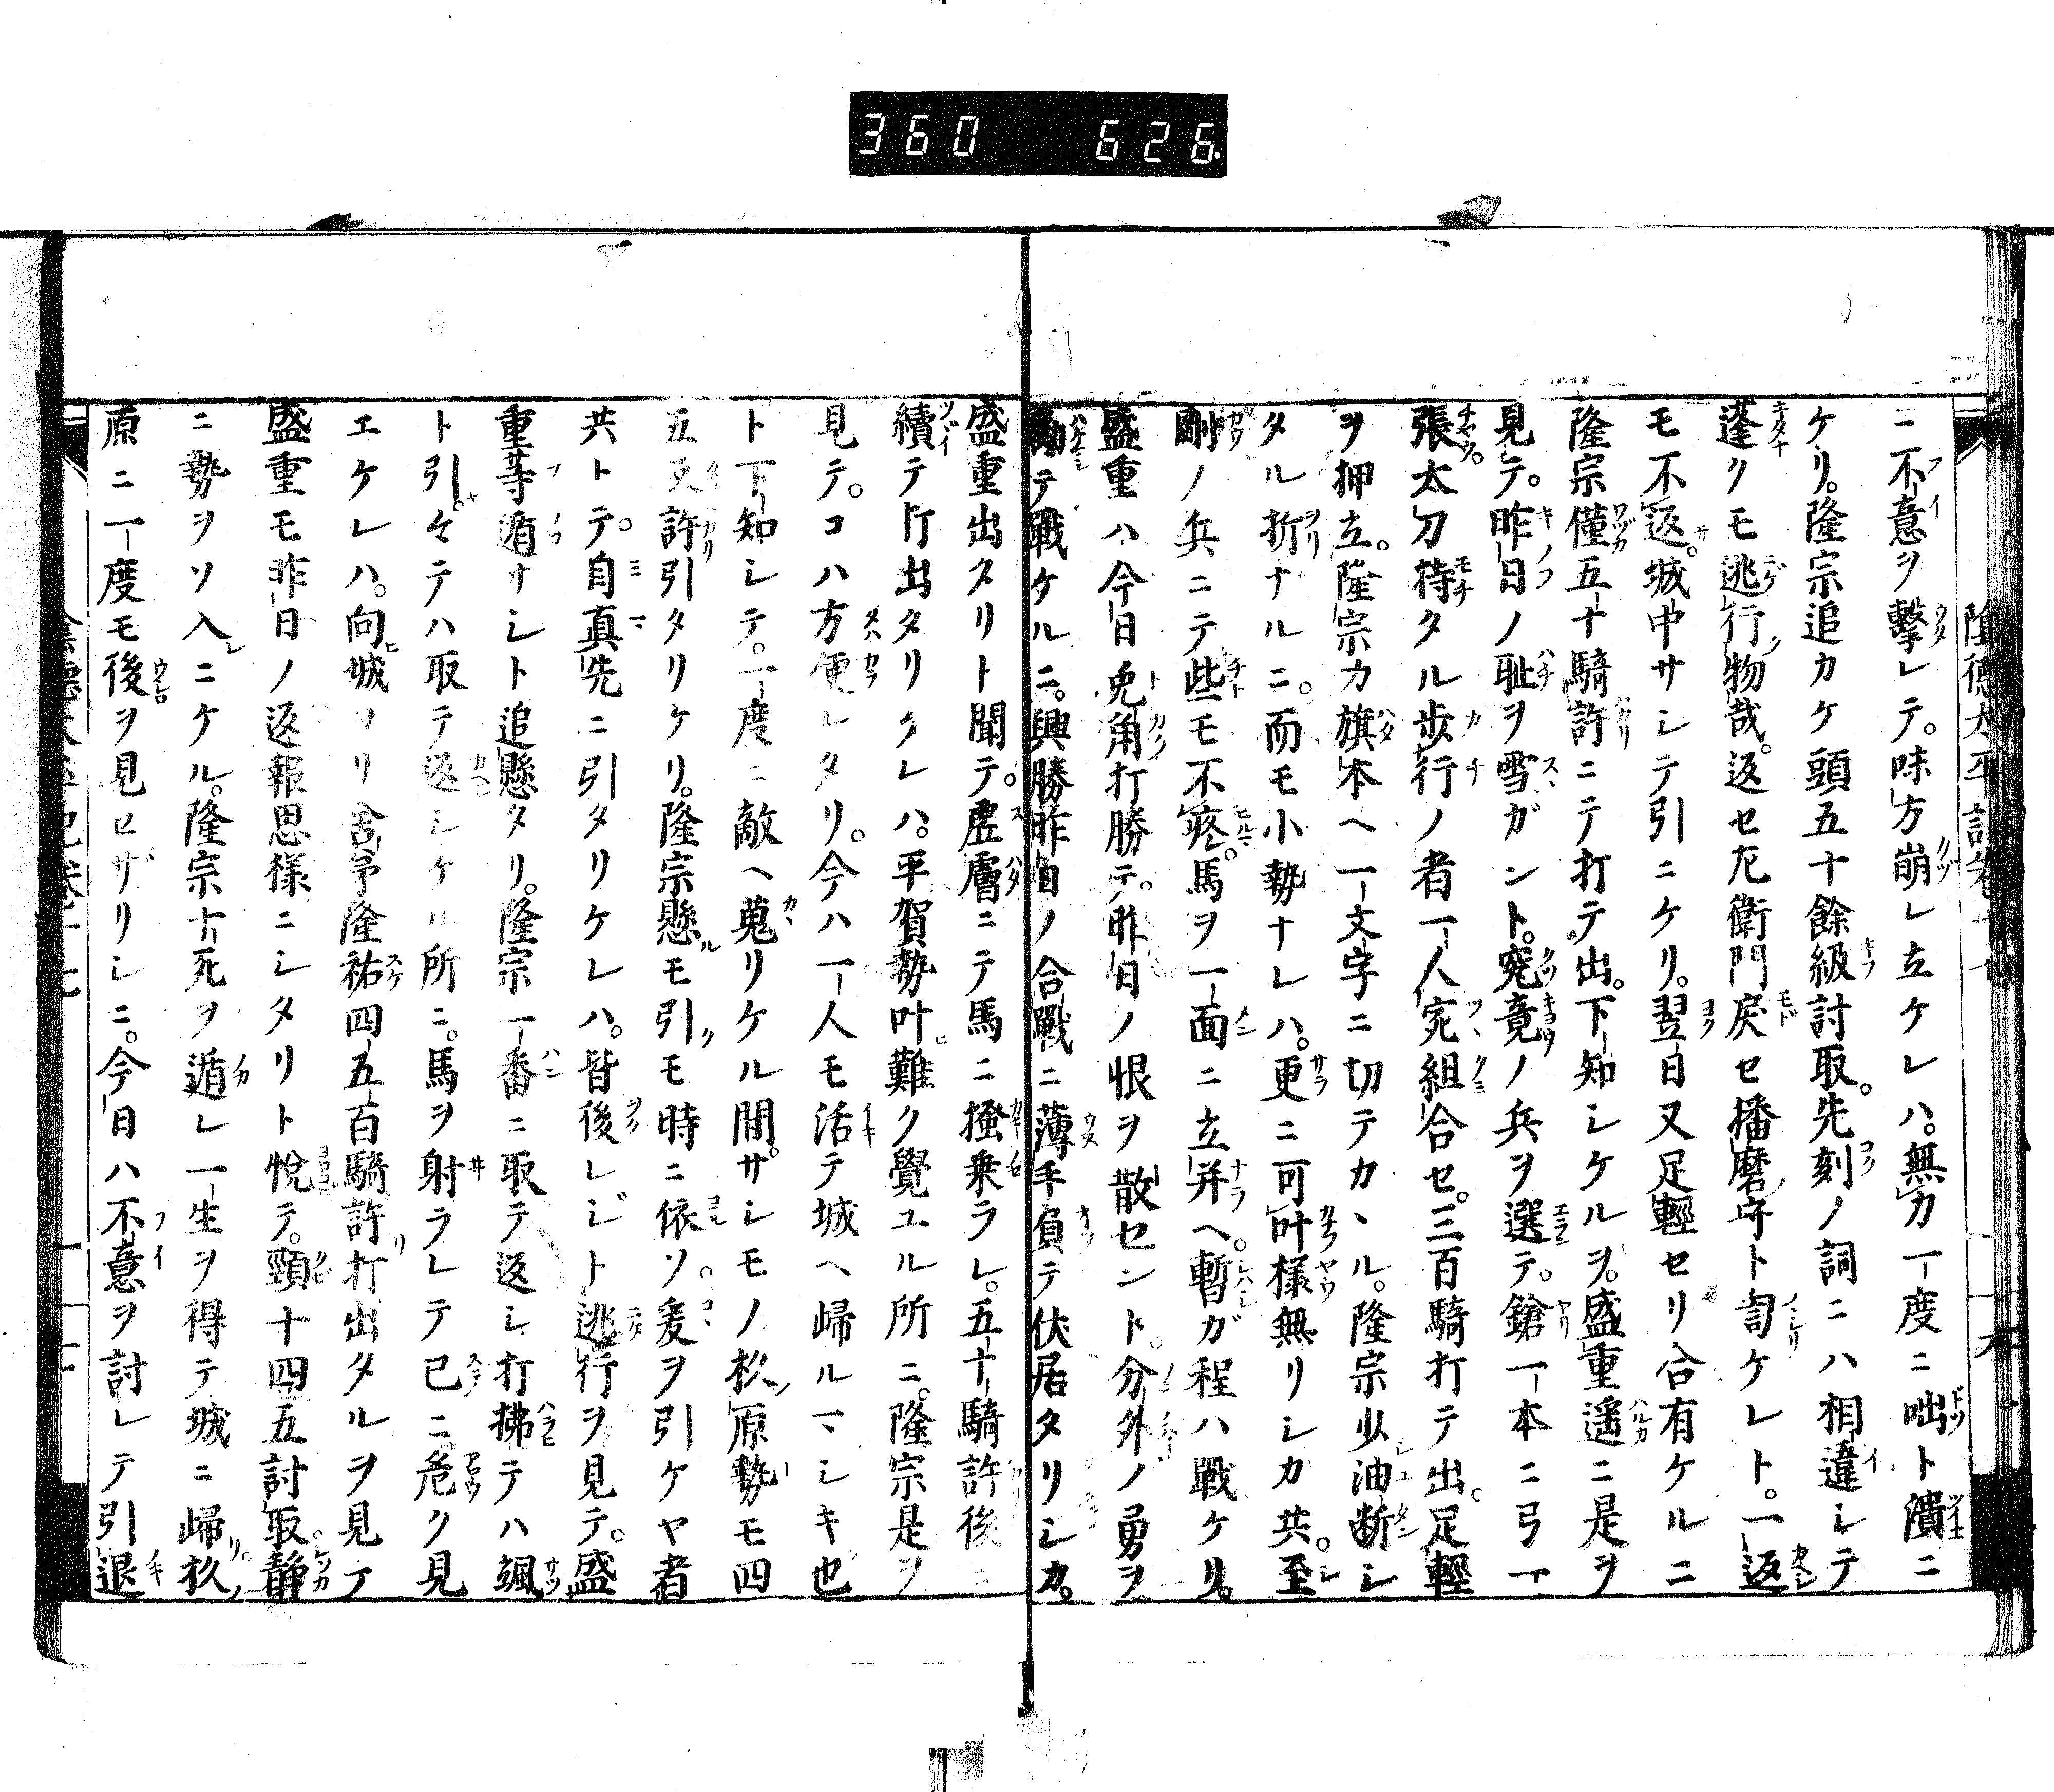 360 626
ニ不意ヲ撃レテ。味方崩レ立ケレハ。無力一度ニ咄ト潰ニ
ケリ。隆宗追カケ頭五十餘級討取。先刻ノ詞ニハ相違シテ
蓬クモ逃行物哉。返セ左衛門戻セ播磨守ト訇ケレト。一返
モ不返。城中サシテ引ニケリ。翌日又足輕セリ合有ケルニ
隆宗僅五十騎許ニテ打テ出。下知シケルヲ。盛重遥ニ是ヲ
見テ。昨日ノ耻ヲ雪ガント。究竟ノ兵ヲ選テ。鎗一本ニ弓一
張太刀待タル歩行ノ者一人宛組合セ。三百騎打テ出。足輕
ヲ押立。隆宗カ旗本ヘ一文字ニ切テカヽル。隆宗少油断シ
タル折ナルニ。而モ小勢ナレハ。更ニ可叶様無リシカ共。至
剛ノ兵ニテ些モ不疼。馬ヲ一面ニ立并ヘ。暫ガ程ハ戰ケリ。
盛重ハ今日兎角打勝テ。昨日ノ恨ヲ散セント。分外ノ勇ヲ
勵テ戰ケルニ。興勝昨日ノ合戰ニ薄手負テ伏居タリシカ。
盛重出タリト聞テ。虗膚ニテ馬ニ掻乗ラレ。五十騎許後ニ
續テ打出タリケレハ。平賀勢叶難ク覺ユル所ニ。隆宗是ヲ
見テ。コハ方便レタリ。今ハ一人モ活テ城ヘ歸ルマシキ也
ト下知シテ。一度ニ敵ヘ蒐リケル間。サシモノ杦原勢モ四
五更許引タリケリ。隆宗懸モ引モ時ニ依ソ。爰ヲ引ケヤ者
共トテ。自真先ニ引タリケレハ。皆後レジト逃行ヲ見テ。盛
重等遁ナシト追懸タリ。隆宗一番ニ取テ返シ打拂テハ颯
ト引。々テハ取テ返シケル所ニ。馬ヲ射ラレテ已ニ危ク見
エケレハ。向城ヨリ舎弟隆祐四五百騎許打出タルヲ見テ
盛重モ昨日ノ返報思様ニシタリト悅テ。頸十四五討取。静
ニ勢ヲソ入ニケル。隆宗十死ヲ遁レ一生ヲ得テ城ニ歸リ。杦
原ニ一度モ後ヲ見セザリシニ。今日ハ不意ヲ討レテ引退